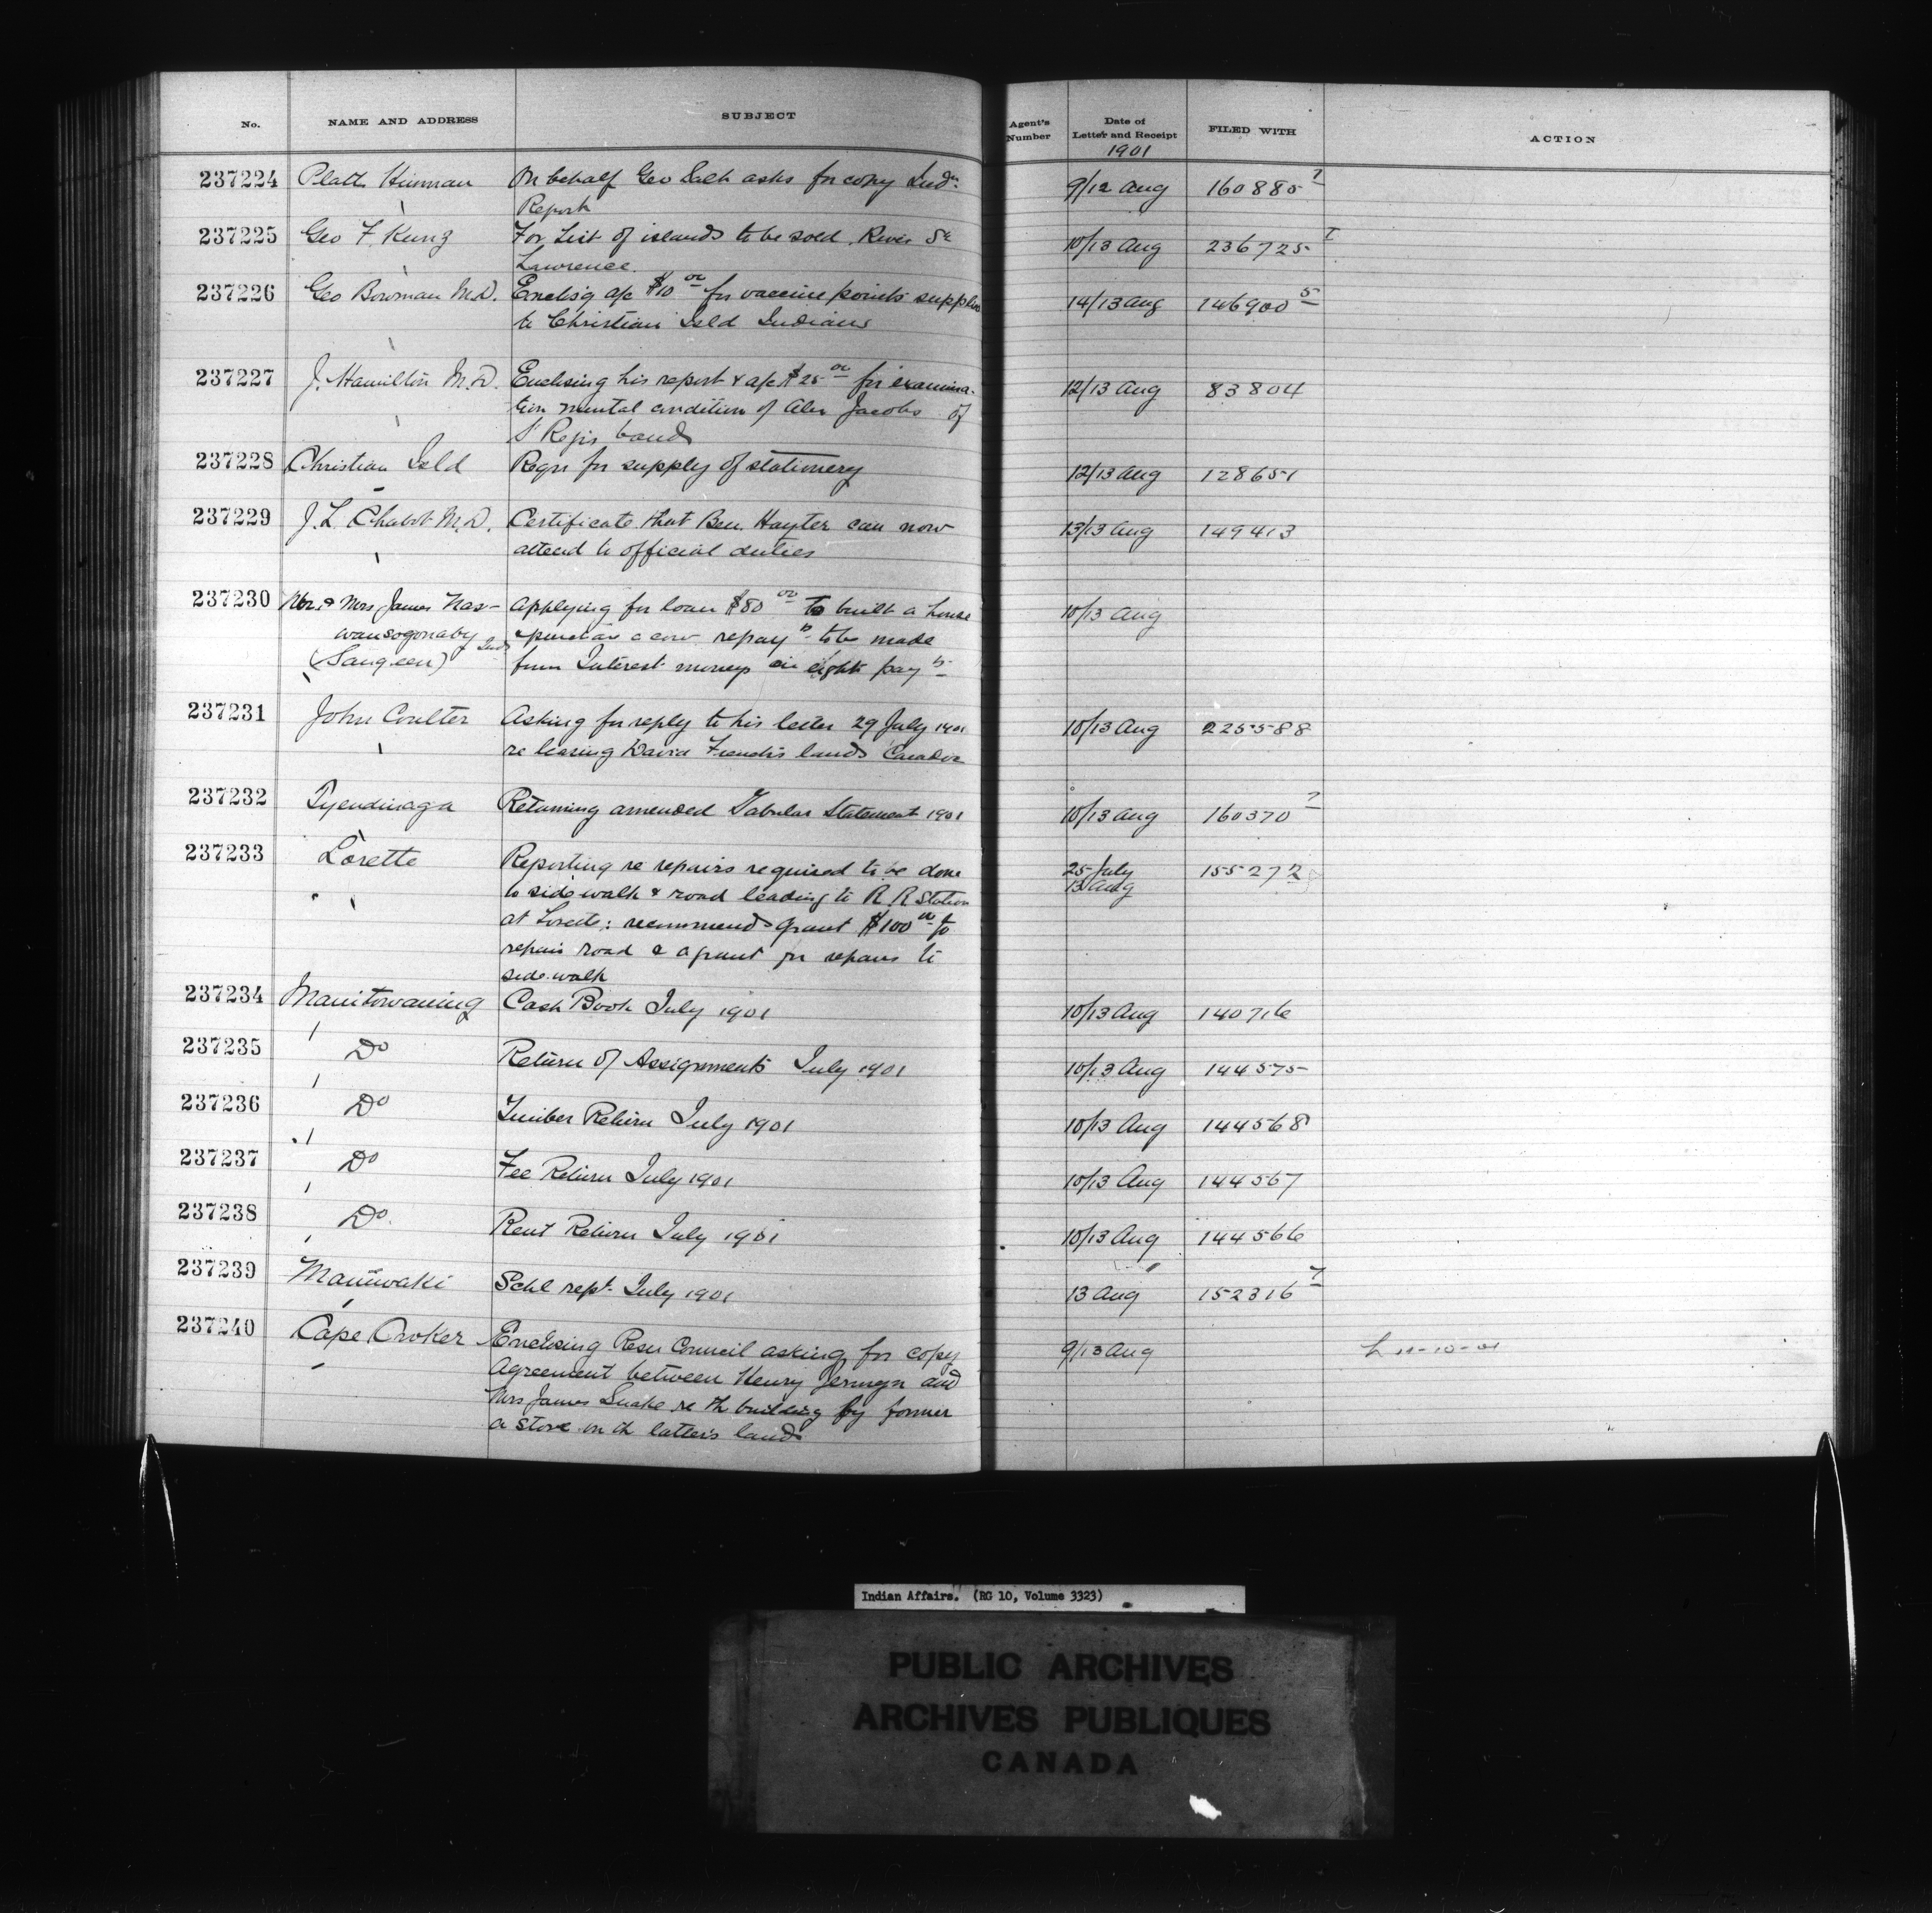 No. NAME AND ADDRESS SUBJECT Agent's Number Date of Letter and Receipt FILED WITH ACTION
1901
237224 Platt Hinman On behalf Geo Salt asks for copy Indn 9/12 Aug 160885 7
Report
237225 Geo F. Kunz For List of islands to be sold River St 10/13 Aug 236725 1
Lawrence
237226 Geo Bowman M.D. Enclos'g a/c $10 00 for vaccine points supplied 14/13 Aug 146900 5
to Christian Isld Indians
237227 J. Hamilton M.D. Enclosing his report & a/c $25 00 for examina- 12/13 Aug 83804
tion mental condition of Alex Jacobs of
St Regis band
237228 Christian Isld Reqn for supply of stationery 12/13 Aug 128651
237229 J. L. Chabot M.D. Certificate that Ben. Hayter can now 13/13 Aug 149413
attend to official duties
237230 Mr. & Mrs James Nas- Applying for loan $80 00 to built a house 10/13 Aug
wansogonaby & purchase a cow repayts to be made
(Saugeen) from Interest moneys in eight payts
237231 John Coulter Asking for reply to his letter 29 July 1901 10/13 Aug 225588
re leasing David French's lands Caradoc
237232 Tyendinaga Returning amended Tabular Statement 1901 10/13 Aug 160370 7
237233 Lorette Reporting re repairs required to be done 25 July 155272
to side walk & road leading to R. R Station 13 Aug
at Lorette: recommends grant $100 00 to
repair road & a grant for repairs to
side walk
237234 Manitowaning Cash Book July 1901 10/13 Aug 140716
237235 Do Return of Assignments July 1901 10/13 Aug 144575
237236 Do Timber Return July 1901 10/13 Aug 144568
237237 Do Fee Return July 1901 10/13 Aug 144567
237238 Do. Rent Return July 1901 10/13 Aug 144566
237239 Maniwaki Schl rept. July 1901 13 Aug 152316 7
237240 Cape Croker Enclosing Resn Council asking for copy 9/13 Aug
Agreement between Henry Jermyn and
Mrs James Snake re th building by former
a store on th latter's lands
Indian Affairs. (RG 10, Volume 3323)
PUBLIC ARCHIVES
ARCHIVES PUBLIQUES
CANADA